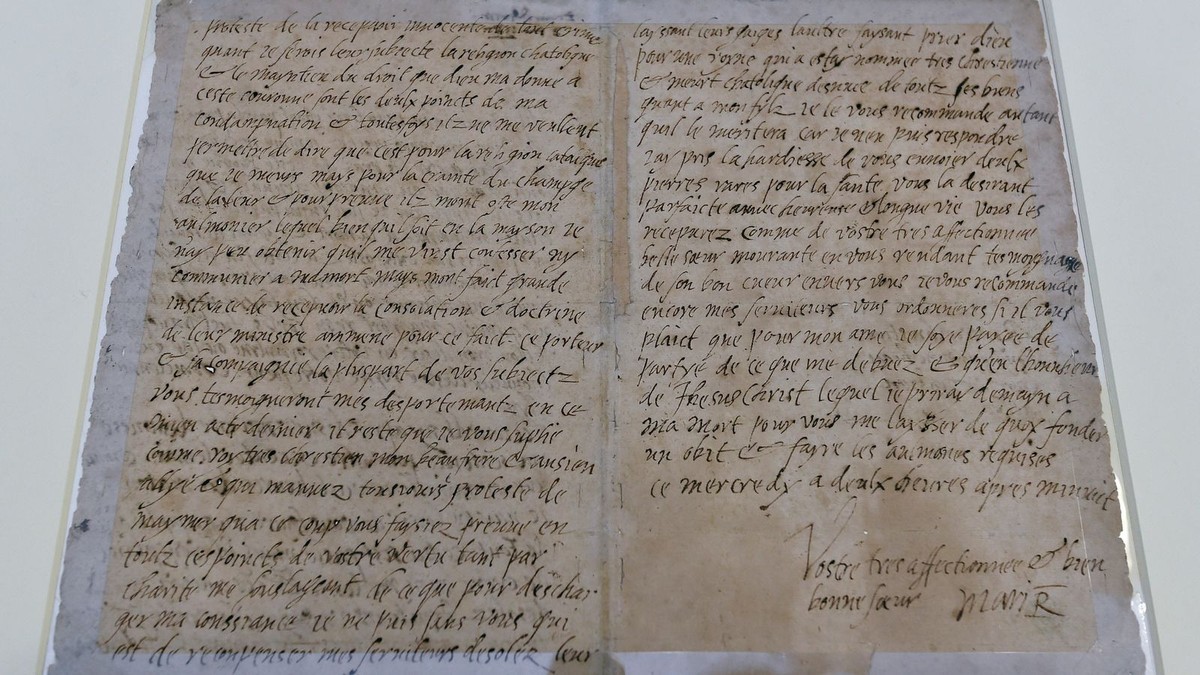 proteste de la recepvoir innocente de tout crime
quant je serois leur subjecte la religion chatolique
& le mayntien du droit que dieu ma donne a
ceste couronne sont les deulx poincts de ma
condampnation & toutesfoys ilz ne me veullent
permettre de dire que cest pour la religion catolique
que je meurs mays pour la crainte du change
de la leur & pour preuve ilz mont oste mon
aulmonier lequel bien quil soit en la mayson je
nay peu obtenir quil me vinst confesser ny
communier a ma mort mays mont fait grande
instance de recepvoir la consolation & doctrine
de leur ministre ammene pour ce faict ce porteur
& sa compaignie la pluspart de vos subjectz
vous tesmoigneront mes desportemantz en ce
mien acte dernier il reste que je vous suplie
comme roy tres chrestien mon beau frere & ansien
allye & qui mavvez tousjours proteste de
maymer qua ce coup vous faysiez preuve en
toutz ces poincts de vostre vertu tant par
charite me soulageant de ce que pour deschar
ger ma conssiance je ne puis sans vous qui
est de recompenser mes serviteurs desolez leur
layssant leurs gaiges laultre faysant prier dieu
pour une royne qui a estay nommee tres chrestienne
& meurt chatolique desnuee de toutz ses biens
quant a mon fylz je le vous recommande autant
quil le meritera car je nen puis respondre
jay pris la hardiesse de vous envoier deulx
pierres rares pour la sante vous la desirant
parfaicte auvec heureuse & longue vie vous les
recepvrez comme de vostre tres affectionnee
belle sœur mourante en vous rendant tesmoygnage
de son bon cueur envers vous je vous recommande
encore mes serviteurs vous ordonnerez si il vous
plaict que pour mon ame je soye payee de
partye de ce que me debvez & quen lhonneur
de Jhesus Christ lequel je priray demayn a
ma mort pour vous me laysser de quoy fonder
un obit & fayre les aulmones requises
ce mercredy a deulx heures apres minuict
Vostre tres affectionnee & bien
bonne sœur Mari R